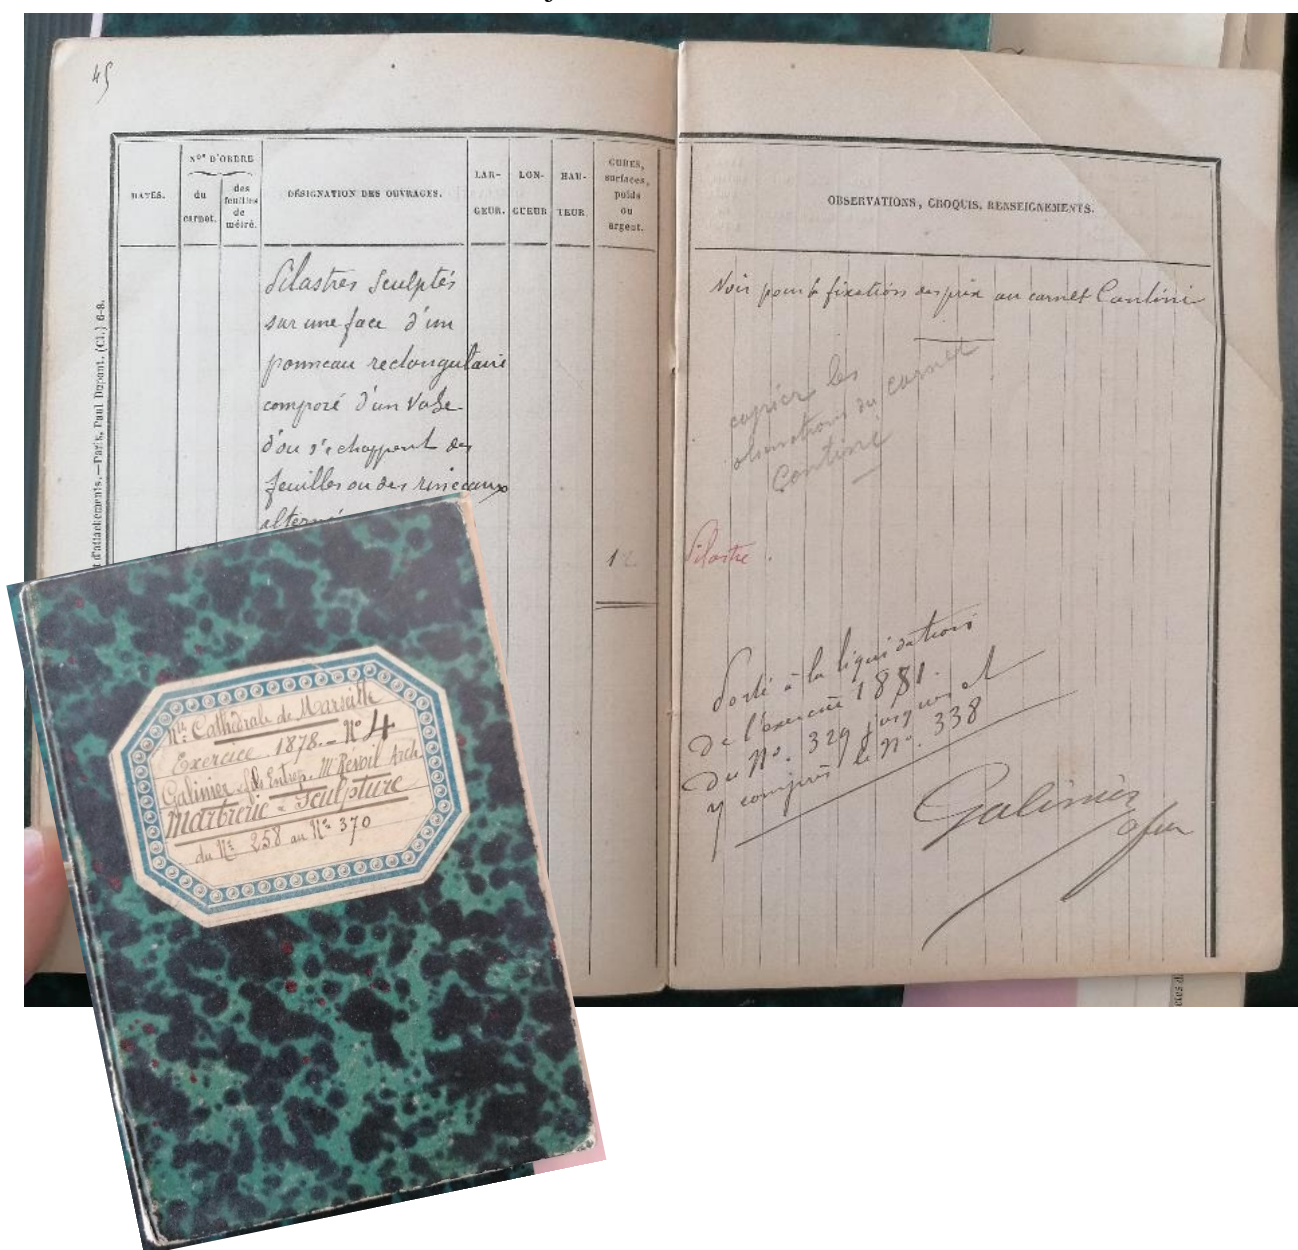 45
DATES.
Nos D'ORDRE
du carnet.
des feuilles de métré.
DÉSIGNATION DES OUVRAGES.
LAR-
GEUR.
LON-
GUEUR
HAU-
TEUR
CUBES,
surfaces,
poids
ou
argent.
Pilastres sculptés
sur une face d'un
panneau rectangulaire
composé d'un Vase
d'ou s'echappent des
feuilles ou des rinceaux
1
d'attachements. — Paris, Paul Dupont. (Cl.) 6-8.
OBSERVATIONS, CROQUIS, RENSEIGNEMENTS.
Voir pour la fixation des prix au carnet Cantini
copier les
observations du carnet
Cantini
Pilastre.
Porté à la liquidation
de l'exercice 1881.
du No. 329 jusques et
y compris le No. 338
Galinier
Nlle Cathédrale de Marseille
Exercice 1878. - No 4
Galinier fils Entrep. Mr Révoil Arch.
Marbrerie - Sculpture
du No 258 au No 370